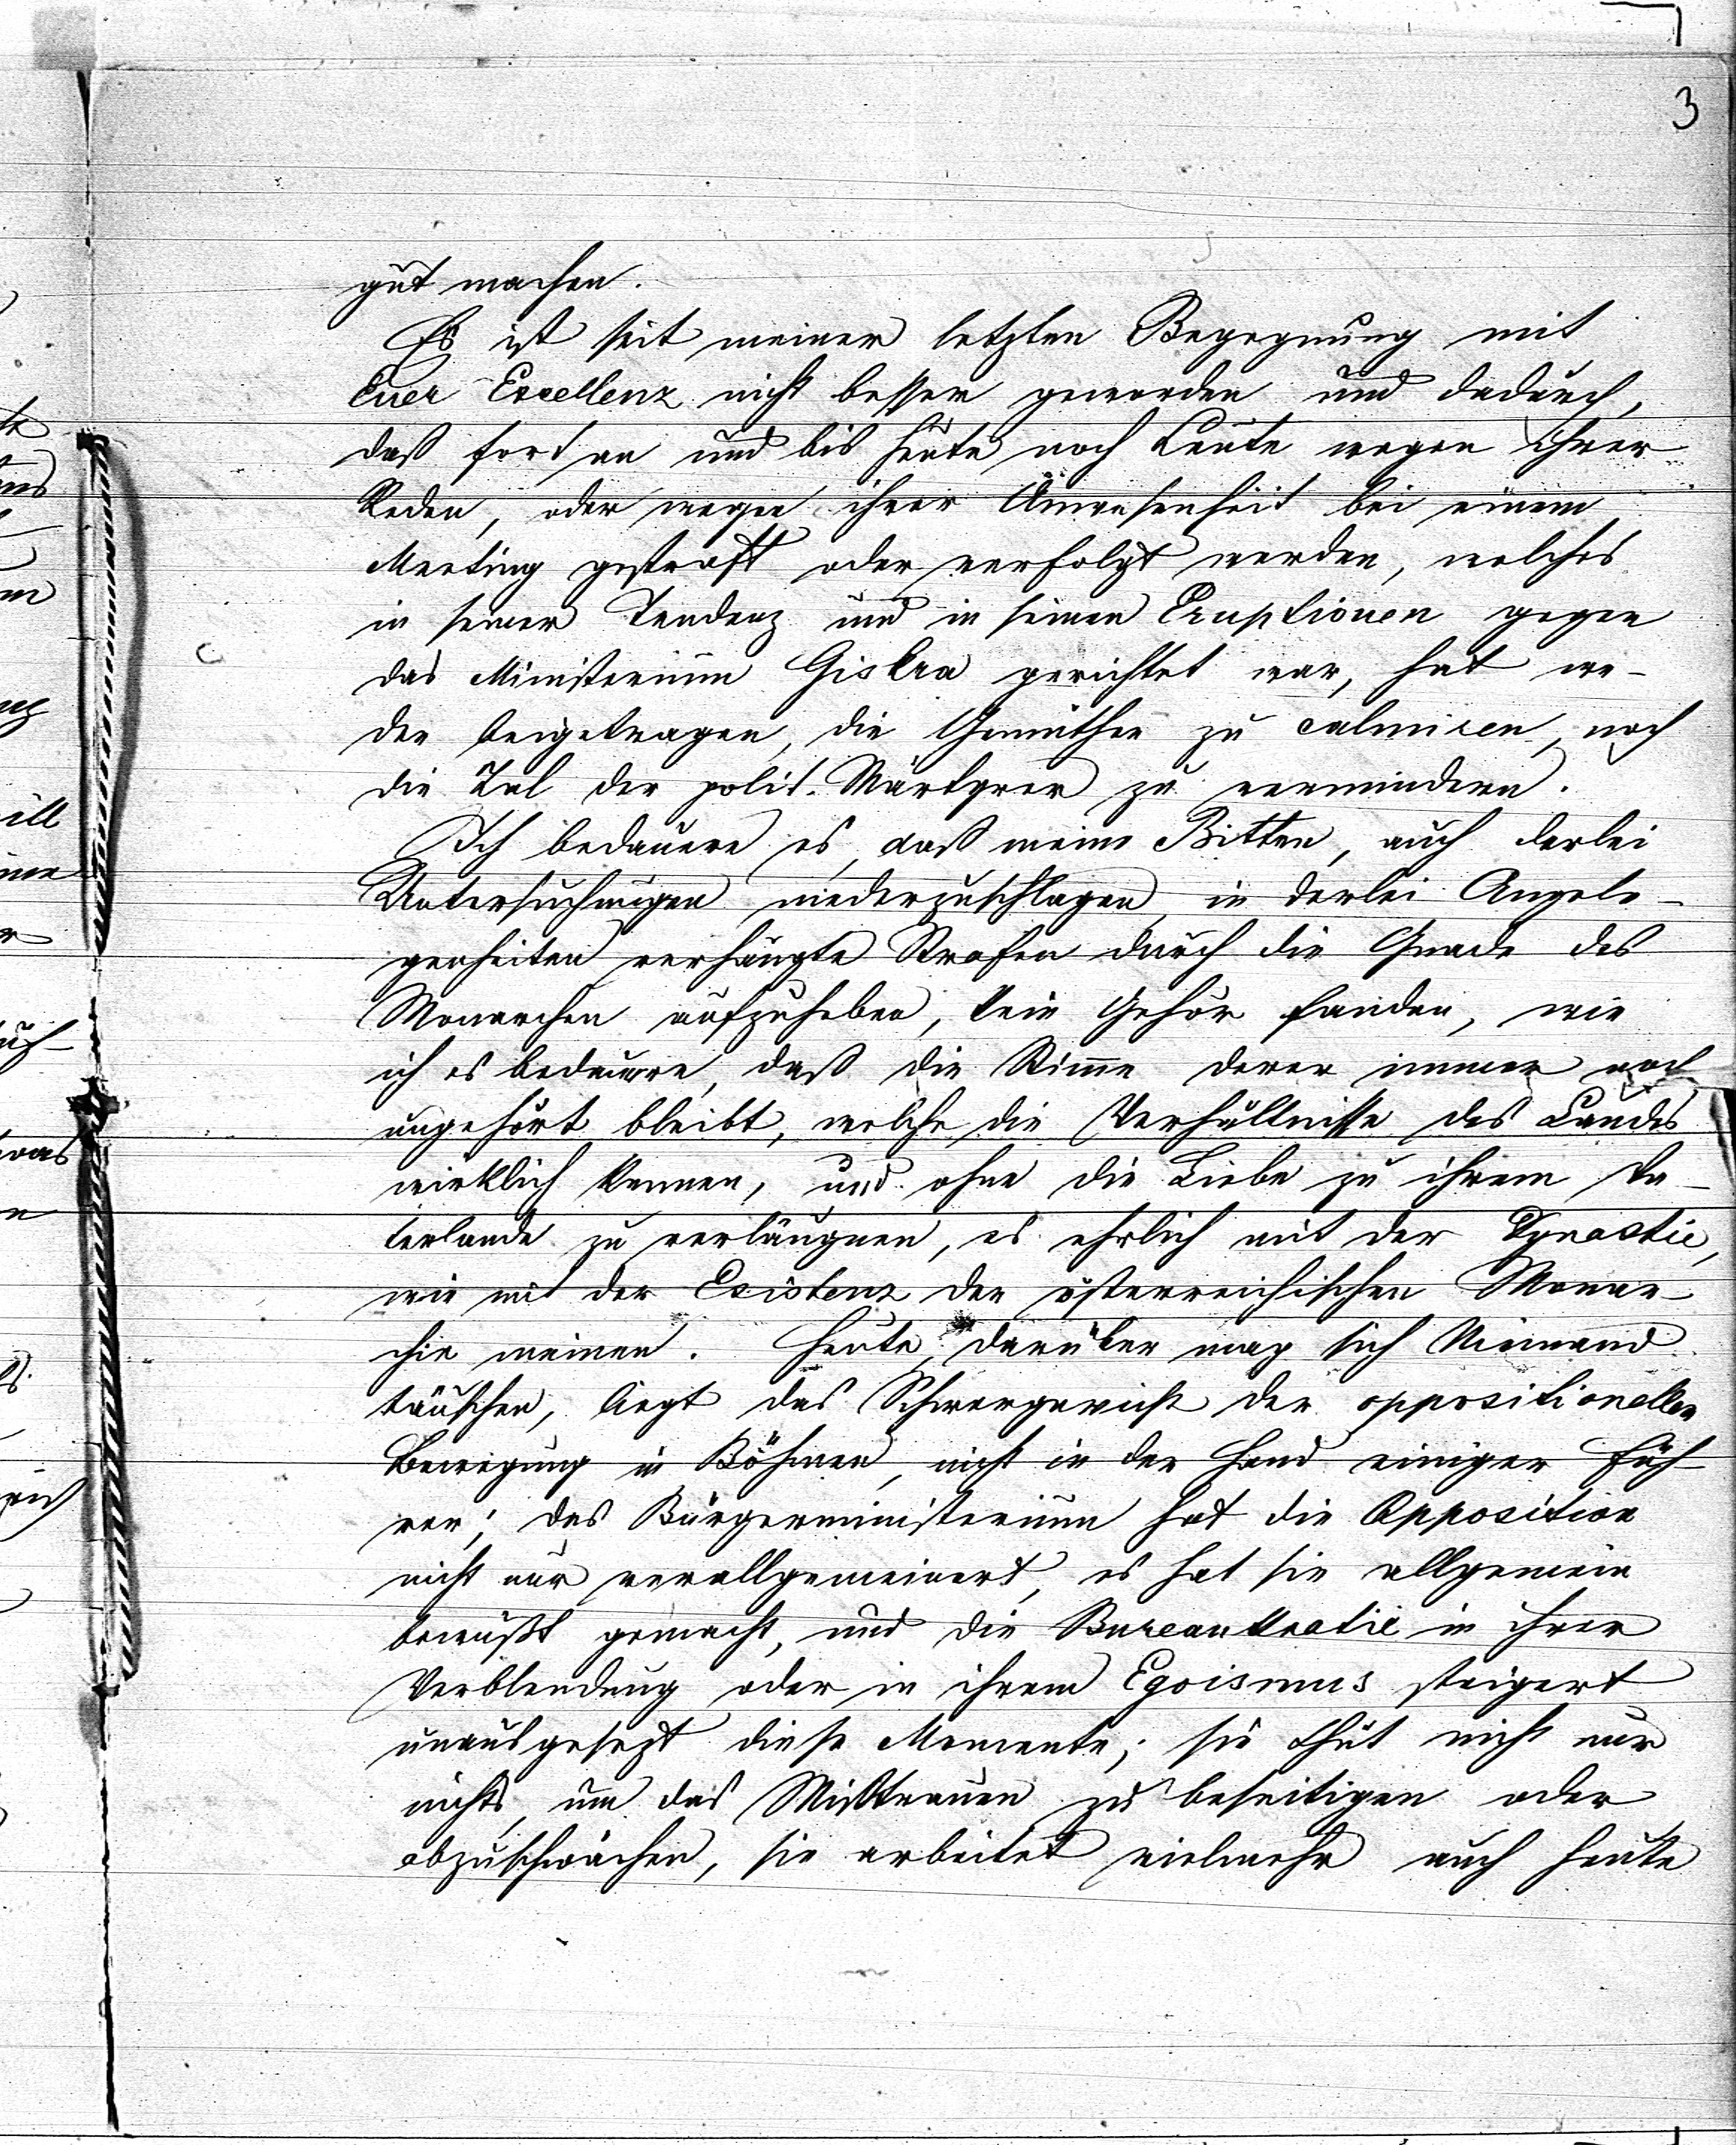 3
gut machen.
Es ist seit meiner letzten Begegnung mit
Euer Excellenz nicht besser geworden und dadurch,
daß fortan und bis heute noch Leute wegen ihrer
Reden, oder wegen ihrer Anwesenheit bei einem
Meeting gestraft oder verfolgt werden, welches
in seiner Tendenz und in seinen Eruptionen gegen
das Ministerium Giskra gerichtet war, hat we-
der beigetragen, die Gemüther zu calmiren, noch
die Zal der polit. Märtyrer zu vermindern.
Ich bedauere es, daß meine Bitten, auch derlei
Untersuchungen niederzuschlagen, in derlei Angele-
genheiten verhängte Strafen durch die Gnade des
Monarchen aufzuheben, kein Gehör fanden, wie
ich es bedauere, daß die Stimme derer immer noch
ungehört bleibt, welche die Verhältnisse des Landes
wirklich kennen, und ohne die Liebe zu ihrem Va-
terlande zu verläugnen, es ehrlich mit der Dynastie,
wie mit der Existenz der österreichischen Monar-
chie meinen. Heute, darüber mag sich Niemand
täuschen, liegt das Schwergewicht der oppositionellen
Bewegung in Böhmen, nicht in der Hand einiger Füh-
rer; das Bürgerministerium hat die Opposition
nicht nur verallgemeinert, es hat sie allgemein
bewußt gemacht, und die Bureaukratie in ihrer
Verblendung oder in ihrem Egoismus steigert
unausgesezt diese Momente; sie thut nicht nur
nichts, um das Mißtrauen zu beseitigen oder
abzuschwächen, sie arbeitet vielmehr auch heute